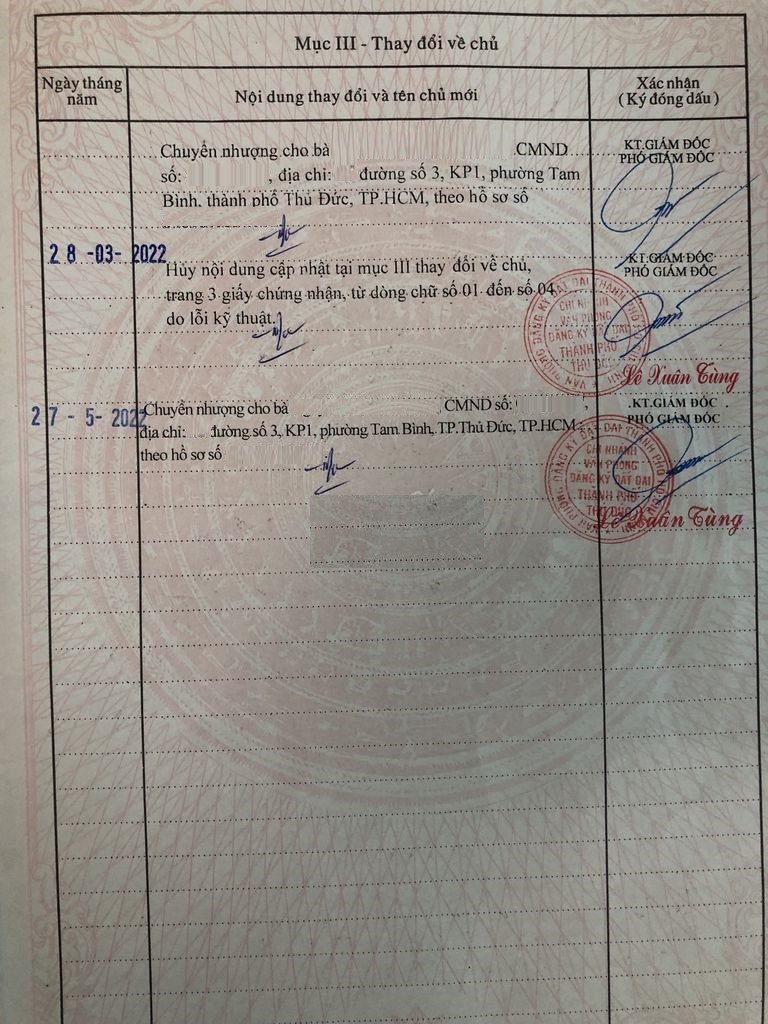 Mục III - Thay đổi về chủ
Ngày tháng năm
Nội dung thay đổi và tên chủ mới
Xác nhận
( Ký đóng dấu )
Chuyển nhượng cho bà CMND
số: , địa chỉ: đường số 3, KP1, phường Tam
Bình, thành phố Thủ Đức, TP.HCM, theo hồ sơ số
KT.GIÁM ĐỐC
PHÓ GIÁM ĐỐC
28-03-2022
Hủy nội dung cập nhật tại mục III thay đổi về chủ,
trang 3 giấy chứng nhận, từ dòng chữ số 01 đến số 04
do lỗi kỹ thuật.
KT.GIÁM ĐỐC
PHÓ GIÁM ĐỐC
VĂN PHÒNG ĐĂNG KÝ ĐẤT ĐAI THÀNH PHỐ
CHI NHÁNH
VĂN PHÒNG
ĐĂNG KÝ ĐẤT ĐAI
THÀNH PHỐ
THỦ ĐỨC
Lê Xuân Tùng
27-5-2022
Chuyển nhượng cho bà , CMND số: ,
địa chỉ: đường số 3, KP1, phường Tam Bình, TP.Thủ Đức, TP.HCM
theo hồ sơ số
KT.GIÁM ĐỐC
PHÓ GIÁM ĐỐC
VĂN PHÒNG ĐĂNG KÝ ĐẤT ĐAI THÀNH PHỐ
CHI NHÁNH
VĂN PHÒNG
ĐĂNG KÝ ĐẤT ĐAI
THÀNH PHỐ
THỦ ĐỨC
Lê Xuân Tùng